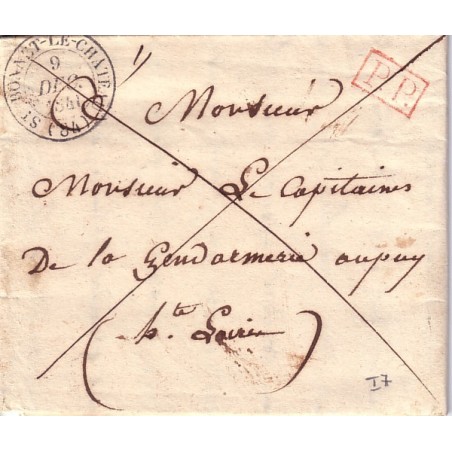 ST BONNET-LE-CHATEAU (84)
9
DEC.
P.P.
Monsieur
Monsieur Le Capitaines
De la Gendarmerie aupuy
(h.te Loire)
I7